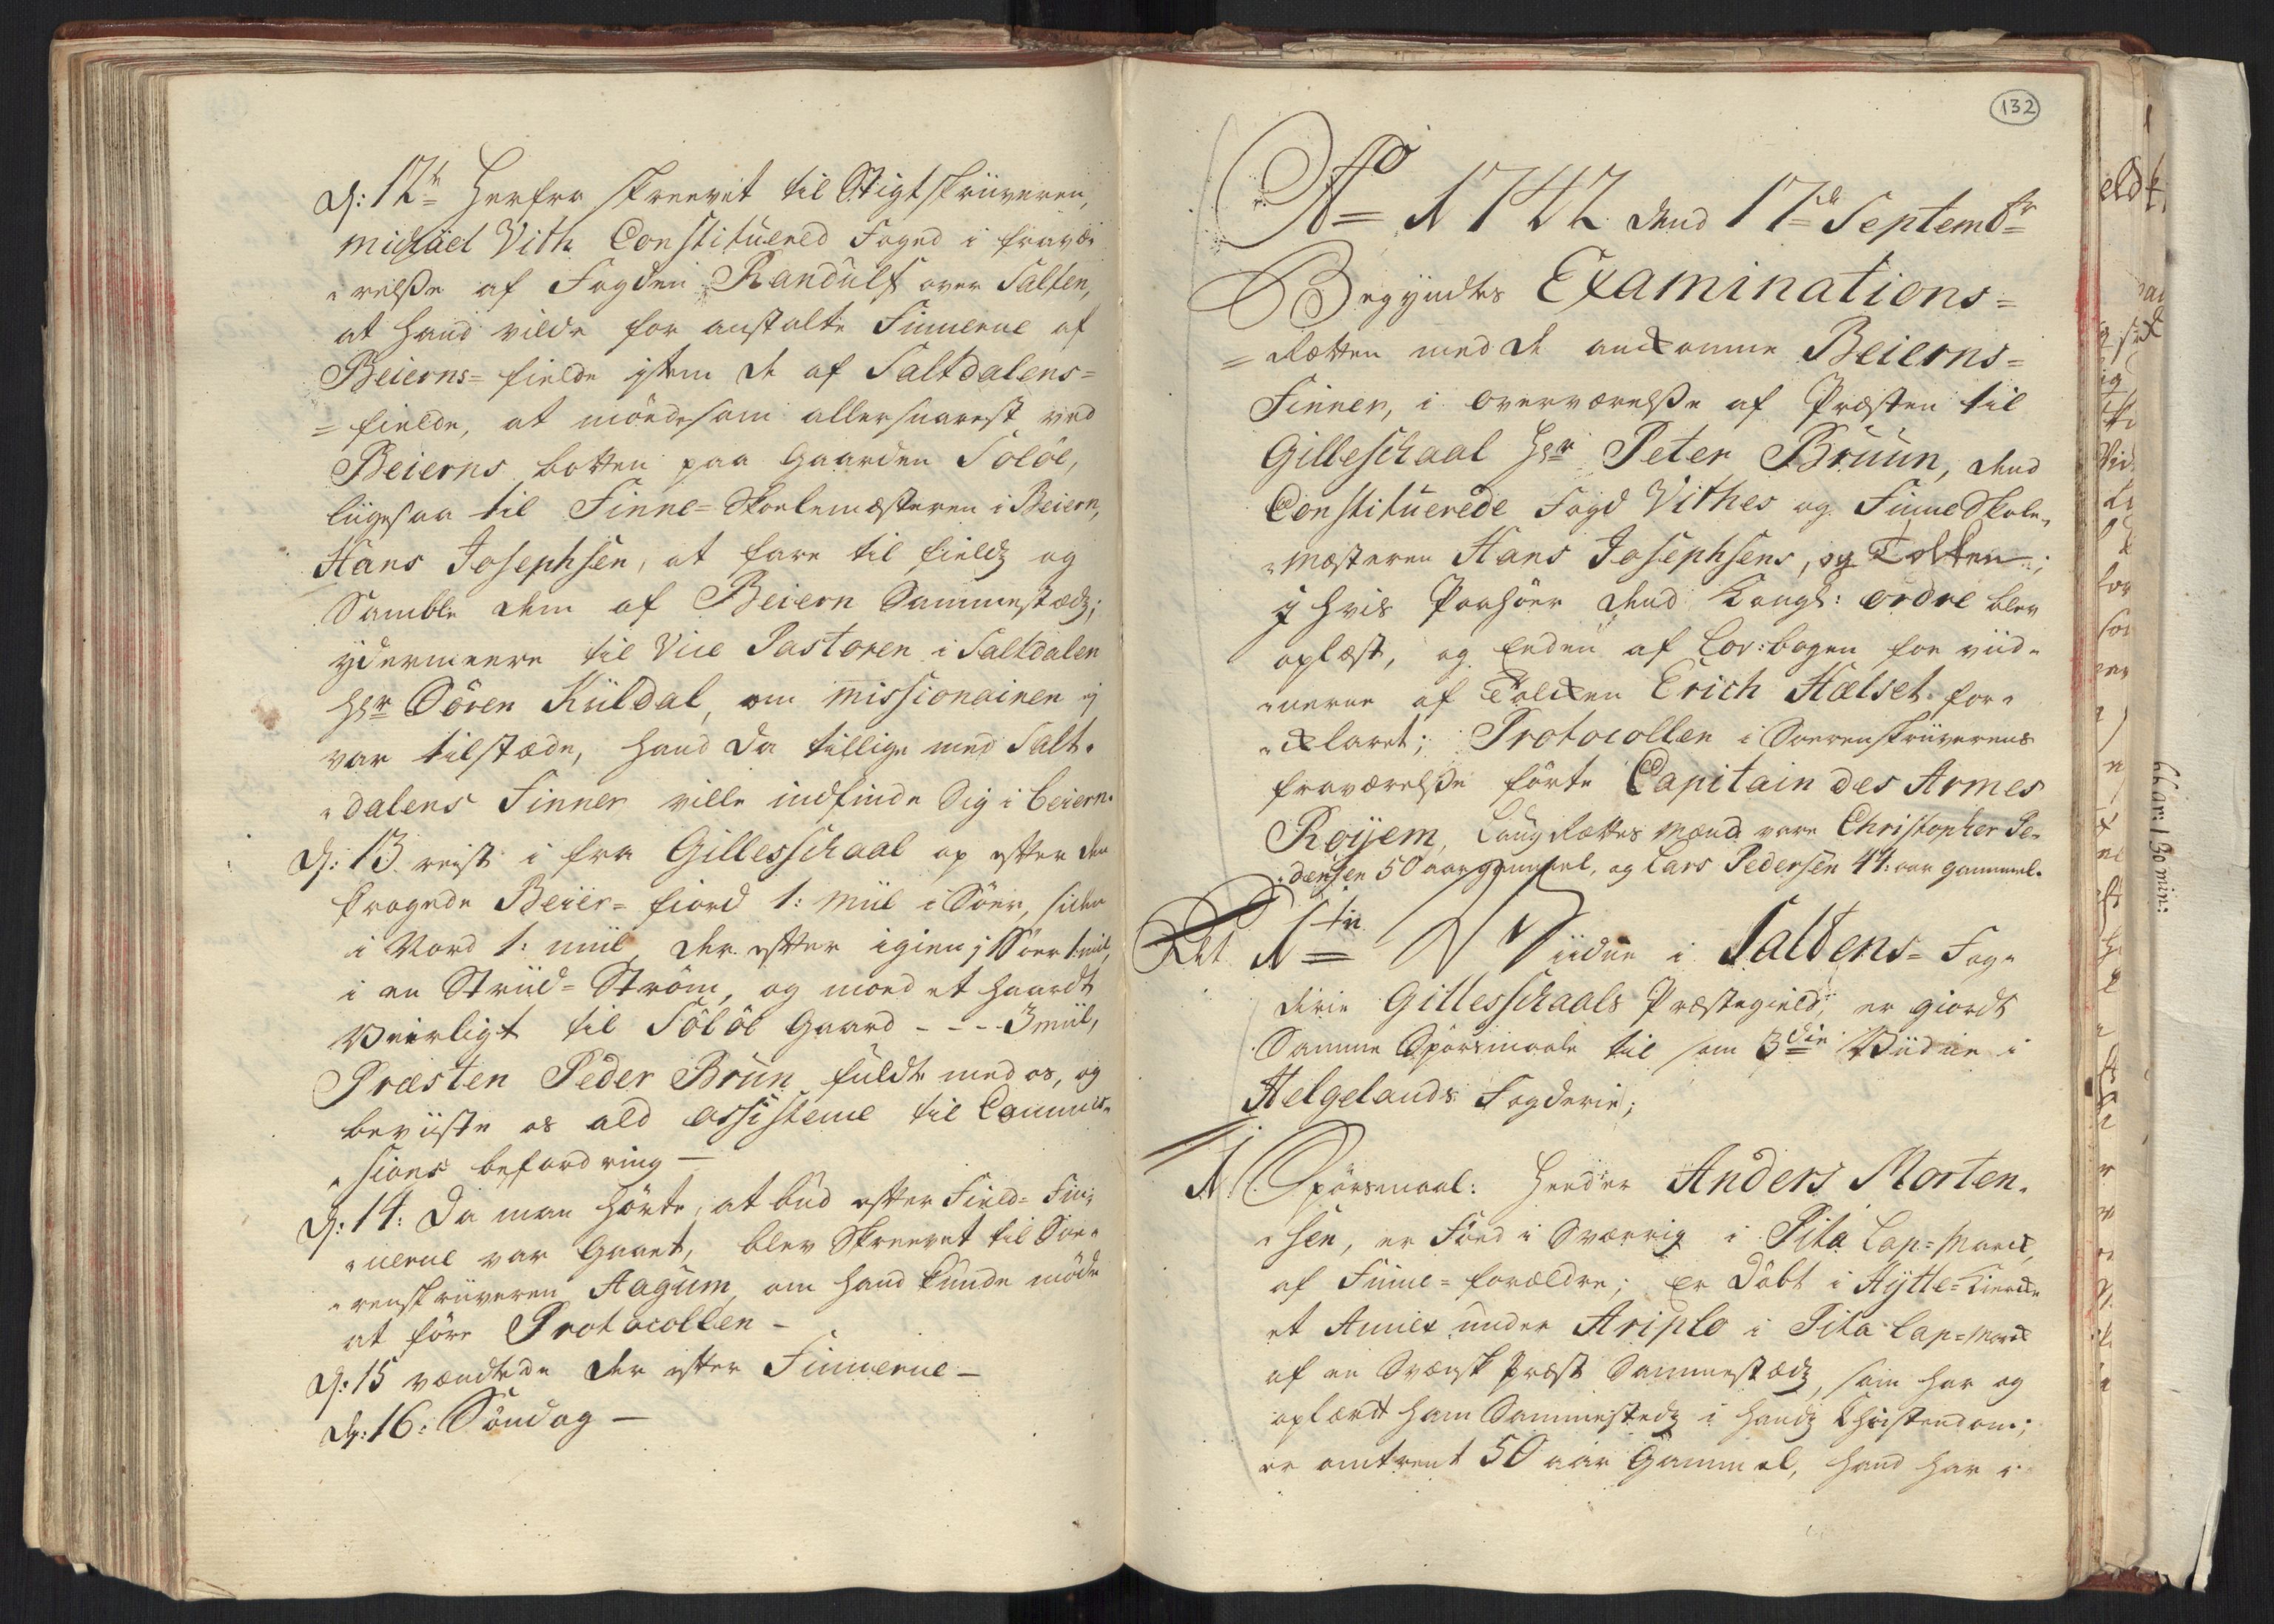 D: 12te Herfra skrevet til Stigtskriiveren,
Michäel Vith Constituered Foged i fravæ-
-relsse af Fogden Randulf over Salten,
at hand vilde for anstalte Finnerne af
Beierns= fielde item de af Saltdalens=
=fielde, at møde som allersnarest ved
Beierns botten paa Gaarden Soløe,
liigesaa til Finne=Skolemesteren i Beiern,
Hans Josephsen, at fare til fields og
Samble dem af Beiern Sammestæds;
ydermeere til Vice Pastoren i Saltdalen
Hr Sören Kiildal, om missionairen ej
var tilstæde, hand da tillige med Salt-
-dalens Finner ville indfinde Sig i beiern.
D: 13 reist i fra Gillesschaal op efter den
krogede Beier= fiord 1: Miil i Söer, siden
i Nord 1: miil, der efter igien i Söer 1 miil,
i en Striid=Ström, og mod et haardt
Veirligt til Sölöe Gaard - - - 3 miil,
Præsten Peder Brün fuldte med os, og
beviiste os ald assistence til Commis-
-sions befordring —
D: 14: Da man hörte, at bud efter Field= Fin-
-nerne var Gaaet, blev Skrevet til Soe-
-renskriiveren Aagum, om hand kunde møde
at före Protocollen —
D: 15 væntede der efter Finnerne —
D: 16: Söndag —
132
Ao 1742 dend 17de Septembr
Begyndtes Examinations=
=Rætten med de ankomne Beierns=
Finner, i overværelsse af Præsten til
Gilleschaal Hr Peter Bruun, dend
Constituerede Fogd Vithes og Finne Skole-
-mesteren Hans Josephsens, og Tolken;
i hvis Paahöer dend Kongl: ordre blev
oplæst, og Eeden af Lov:bogen for viid-
-nerne af Tolken Erich Hælset for-
-klaret; Protocollen i Sorenskriiverens
fraværelsse förte Capitain des Armes
Röyem, Laug Rættes Mænd vare Christopher Pe-
-dersen 50 aar gammel, og Lars Pedersen 44: aar gammel.
Det 1te Viidne i Saltens= Fog-
derie Gillesschaals Præstegield, er giordt
Samme Spörsmaale til som 3die Viidne i
Helgelands Fogderie;
1. Spörsmaal: Heeder Anders Morten-
-sen, er Föed i Sverrig i Pita Lap=Marck,
af Finne=forældre; Er Döbt i Hytte=Kiercke
et Annex under Ariplo i Pita Lap=Marck
af en Svensk Præst Sammestæds, som har og
oplært ham Sammesteds i hands Christendom;
er omtrent 50 aar Gammel, hand har i
66 gr: 30 min: